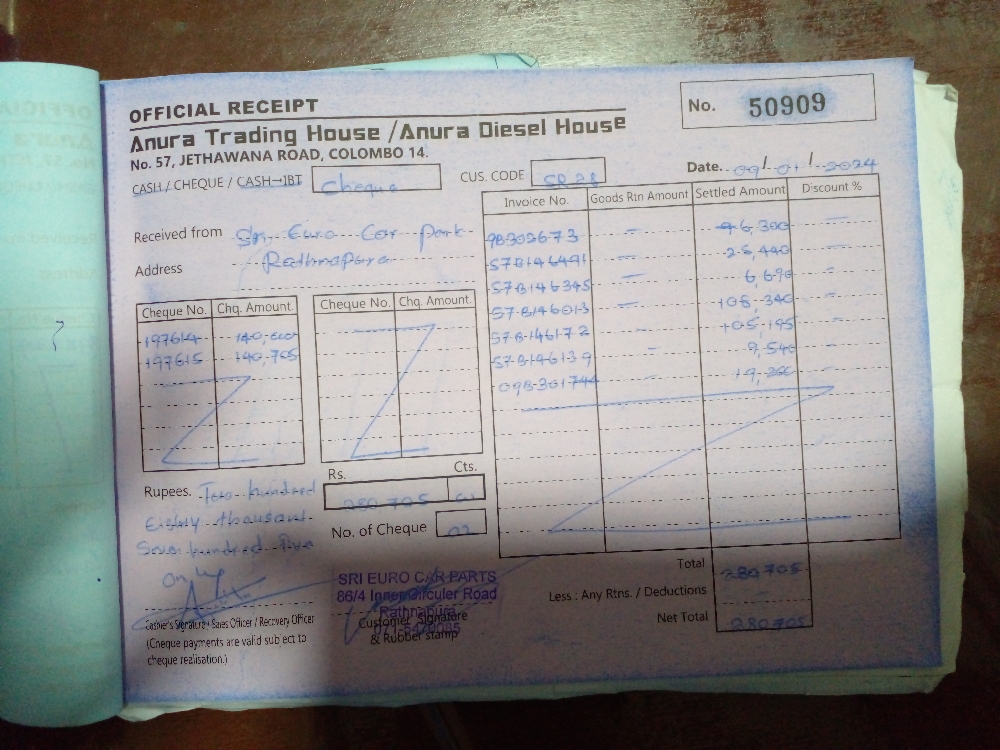 OFFICIAL RECEIPT
No. 50909
Anura Trading House /Anura Diesel House
No. 57, JETHAWANA ROAD, COLOMBO 14.
CASH / CHEQUE / CASH-IBT Cheque CUS. CODE SR 28 Date. 09/01/2024
Received from Sri Euro Car Park
Address Rathnapura
Invoice No. Goods Rtn Amount Settled Amount Discount %
98302673 -
57B146491 - 25,440 -
57B146345 - 6,690 -
57B146013 - 108,340 -
57B146172 105,195 -
57B146139 - 9,540 -
098301744
Cheque No. Chq. Amount. Cheque No. Chq. Amount.
197614 140,000
197615 140,705
Rupees. Two hundred
Eighty thousand
Seven hundred five
only
Rs. Cts.
280 705
No. of Cheque 02
Total 280 705
Less : Any Rtns. / Deductions
Net Total 280 705
Cashier's Signature / Sales Officer / Recovery Officer
(Cheque payments are valid subject to
cheque realisation.)
SRI EURO CAR PARTS
86/4 Inner Circuler Road
Rathnapura
Customer Signature
& Rubber stamp